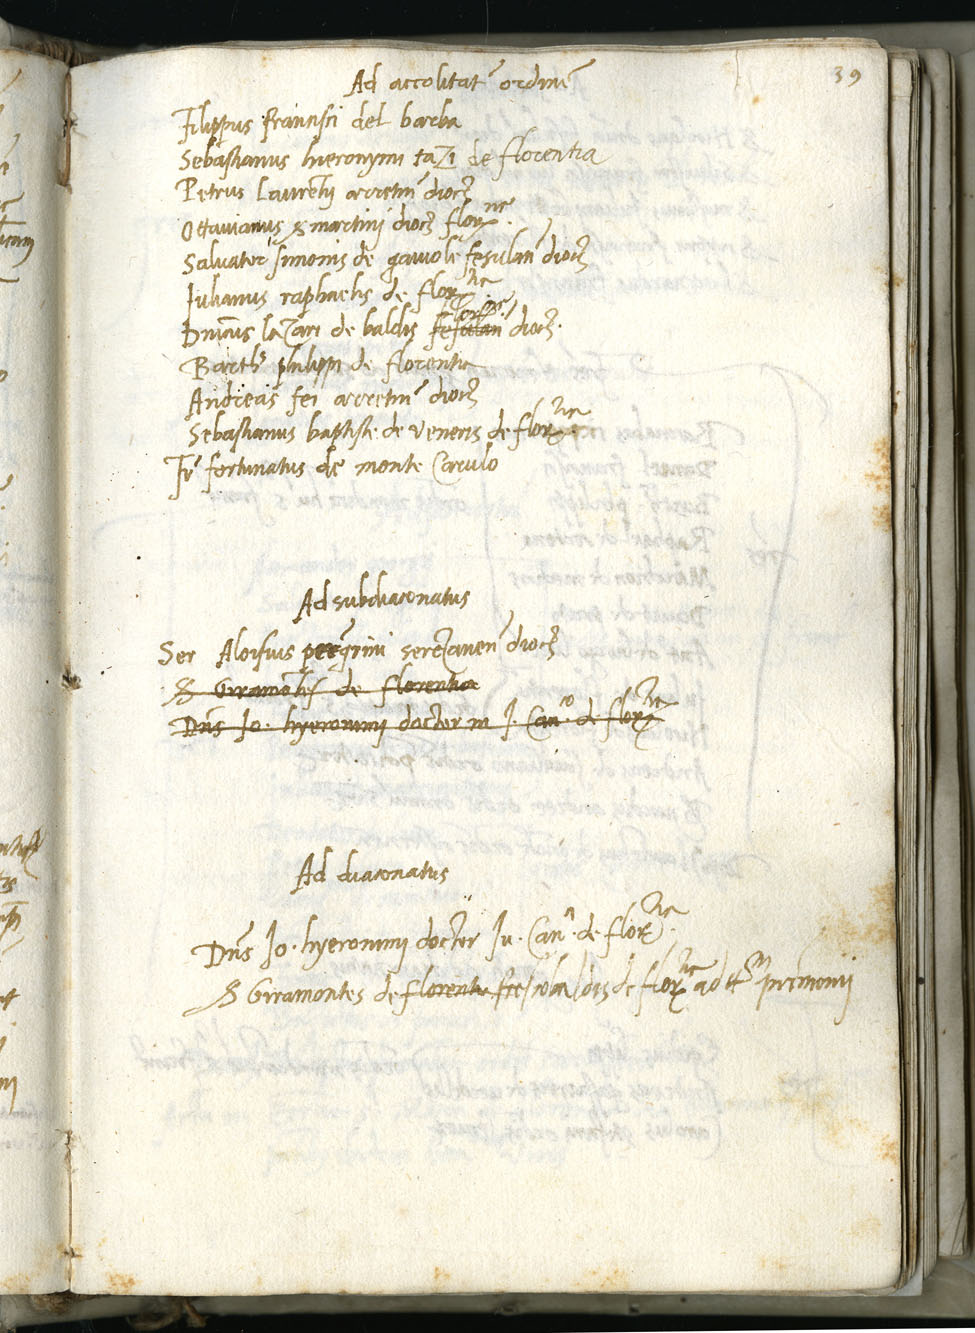 39
Ad accolitat̃ ordinẽ
Filippus francisci del barba
Sebastianus hieronymi tazi de florentia
Petrus Laurẽtij arretin̄ dioc̃
Ottavianus s martinj dioc̃ flor nc
Salvater simonis de gavole fesulañ dioc̃
Julianus raphaelis de flor tie
Dnicus lazari de baldis fesulan dioc̃.
Barth̃ philippi de florentia
Andreas fei arretin̄ dioc̃
Sebastianus baptiste de veneris de flor tie
Fr̃ fortunatus de monte Carulo
Ad subdiaconatus
Ser Aloisius peregrini dioc̃
S Giramõtes de florentia
Dñs Jo. hyeronimj docter in J. Canco. de flor tie
Ad diaconatus
Dñs Jo. hyeronimj docter Ju. Can. de flor tie.
S Giramontes de florentia de flor tie ad tt